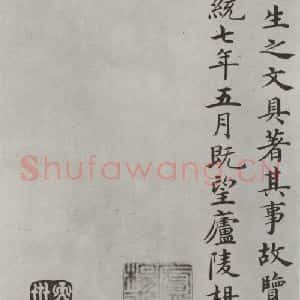 生之文具著其事故覽
統七年五月既望廬陵胡
Shufawang.CN